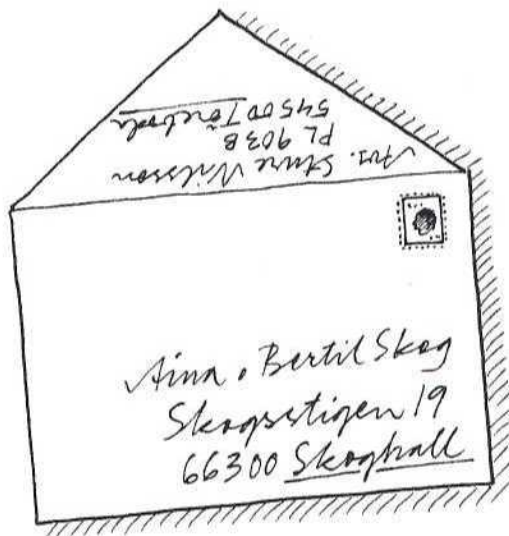 Avs. Sture Nilsson
PL 903B
54500 Töreboda
Aina o Bertil Skog
Skogsstigen 19
66300 Skoghall